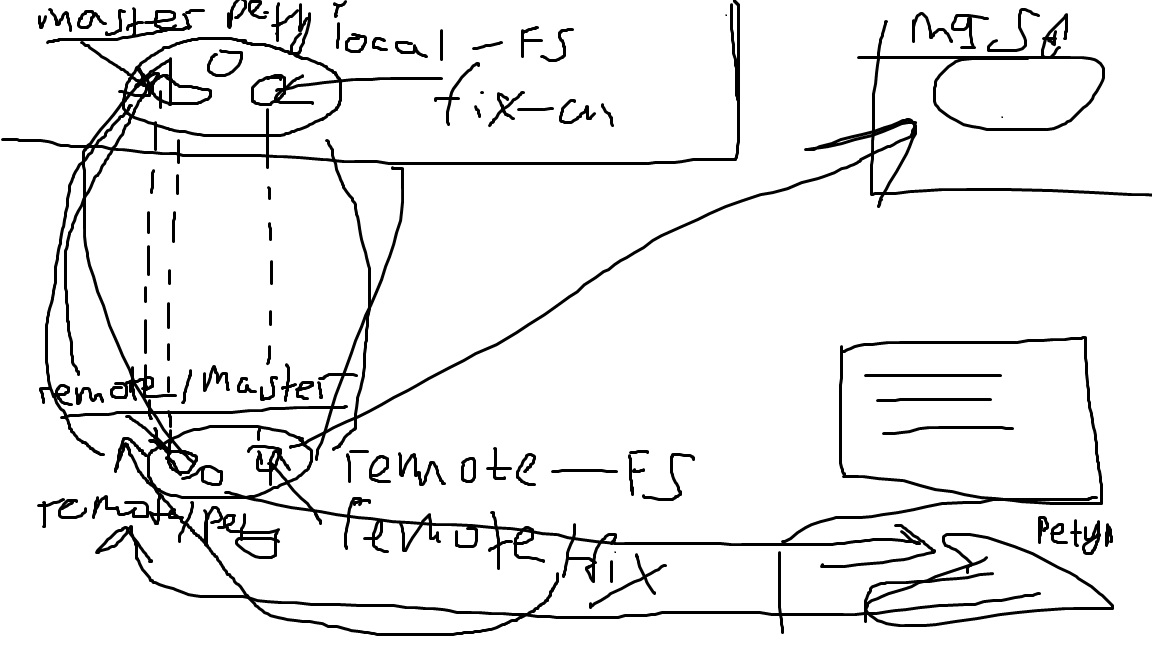 master petyi
local - FS
fix-an
remote/Master
remote - FS
remote/pet
remote/fix
Petya